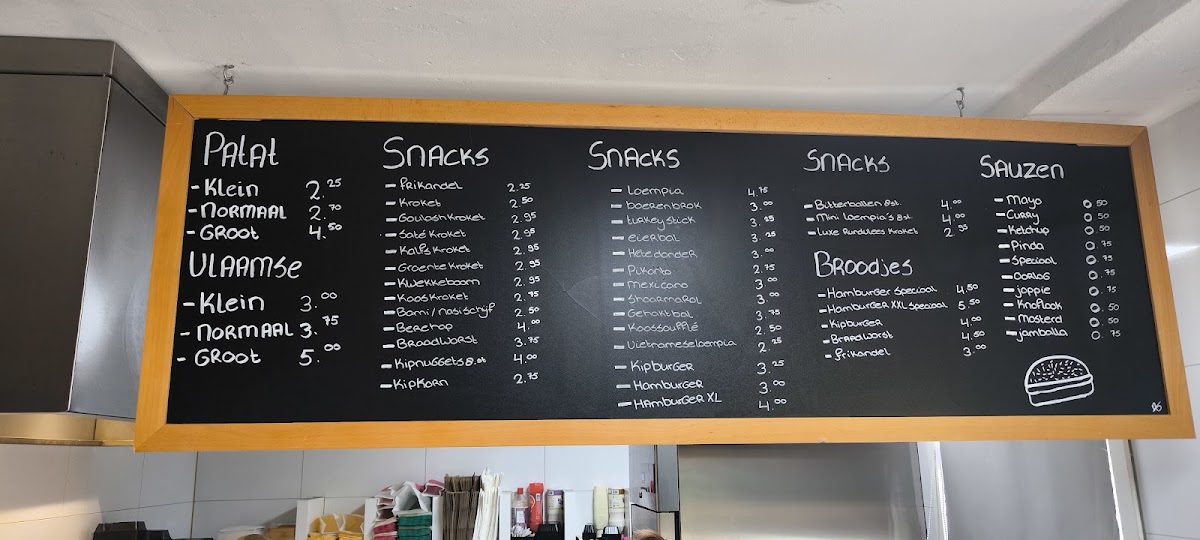 Patat
- Klein 2.25
- NORMAAL 2.70
- GROOt 4.50
VLAAMSE
- Klein 3.00
- NORMAAL 3.75
- GROOt 5.00
SNACKS
- Frikandel 2.25
- Kroket 2.50
- Goulash Kroket 2.95
- Saté Kroket 2.95
- Kalfs Kroket 2.95
- Groente Kroket 2.95
- Kwekkeboom 2.95
- Kaas Kroket 2.75
- Bami / nasischijf 2.50
- Berehap 4.00
- Braadworst 3.75
- Kipnuggets 8.st 4.00
- KipKorn 2.75
SNACKS
- Loempia 4.75
- boerenbrok 3.00
- turkey stick 3.
- eierbal 3.25
- Hete donder 3.00
- Pikanto 2.75
- Mexicano 3.00
- Shoarmarol 3.00
- Gehaktbal 3.75
- Kaassoufflé 2.50
- Vietnameseloempia 2.25
- Kipburger 3.25
- Hamburger 3.00
- Hamburger XL 4.00
SNACKS
- Butterballen 8st 4.00
- Mini Loempia's 8st 4.00
- Luxe Rundvlees Kroket 2.95
Broodjes
- Hamburger Speciaal 4.50
- Hamburger XXL Speciaal 5.50
- Kipburger 4.00
- Braadworst 4.50
- frikandel 3.00
SAUZEN
- Mayo 0.50
- Curry 0.50
- Ketchup 0.50
- Pinda 0.75
- Speciaal 0.75
- Oorlog 0.75
- Joppie 0.75
- Knoflook 0.50
- Mosterd 0.50
- Jamballa 0.75